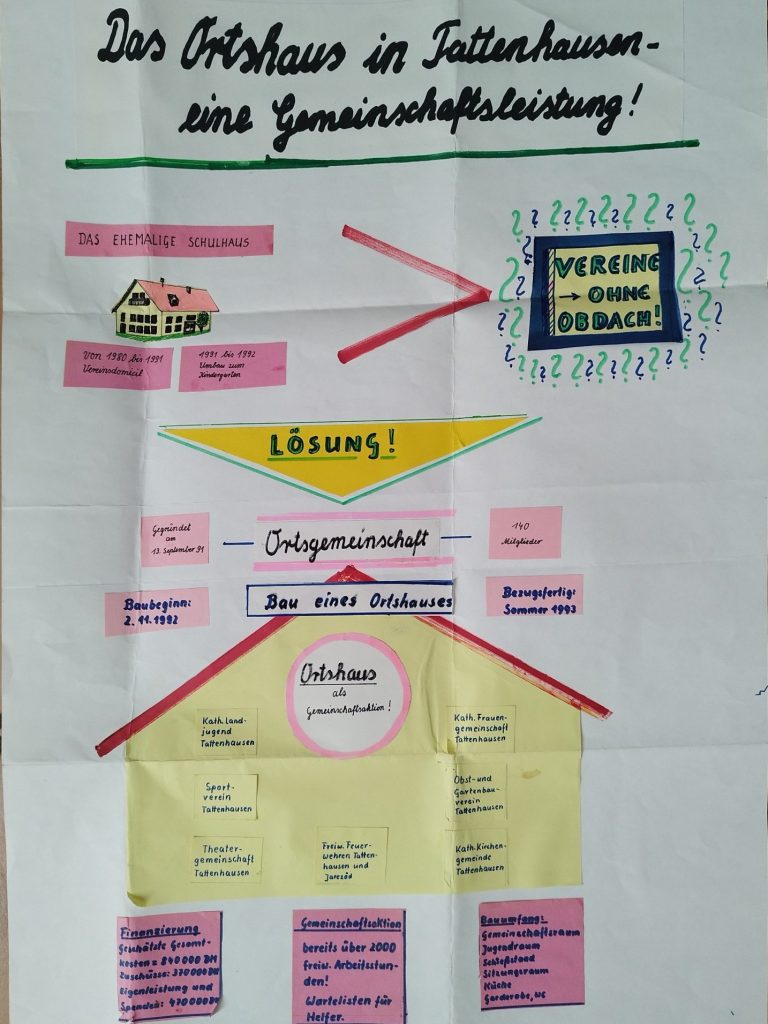 Das Ortshaus in Tattenhausen-
eine Gemeinschaftsleistung!
DAS EHEMALIGE SCHULHAUS
Von 1980 bis 1991
Vereinsdomicil
1991 bis 1992
Umbau zum
Kindergarten
VEREINE
→ OHNE
OBDACH!
LÖSUNG!
Gegründet
am
13. September 91
Ortsgemeinschaft
140
Mitglieder
Baubeginn:
2.11.1992
Bau eines Ortshauses
Bezugsfertig:
Sommer 1993
Ortshaus
als
Gemeinschaftsaktion!
Kath. Land-
jugend
Tattenhausen
Kath. Frauen-
gemeinschaft
Tattenhausen
Sport-
verein
Tattenhausen
Obst- und
Gartenbau-
verein
Tattenhausen
Theater-
gemeinschaft
Tattenhausen
Freiw. Feuer-
wehren Tatten-
hausen und
Jarezöd
Kath. Kirchen-
gemeinde
Tattenhausen
Finanzierung
Geschätzte Gesamt-
kosten = 840 000 DM
Zuschüsse: 370 000 DM
Eigenleistung und
Spenden: 470 000 DM
Gemeinschaftsaktion
bereits über 2000
freiw. Arbeitsstun-
den!
Wartelisten für
Helfer.
Bauumfang:
Gemeinschaftsraum
Jugendraum
Schießstand
Sitzungsraum
Küche
Garderobe, WC